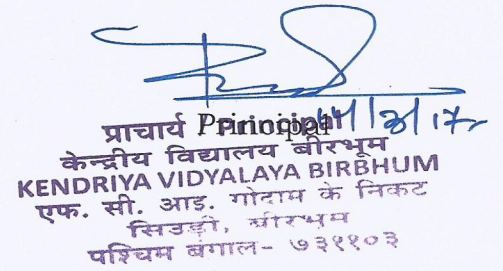 प्राचार्य Principal 14/3/17
केन्द्रीय विद्यालय बीरभूम
KENDRIYA VIDYALAYA BIRBHUM
एफ. सी. आइ. गोदाम के निकट
सिउड़ी, बीरभूम
पश्चिम बंगाल- ७३११०३